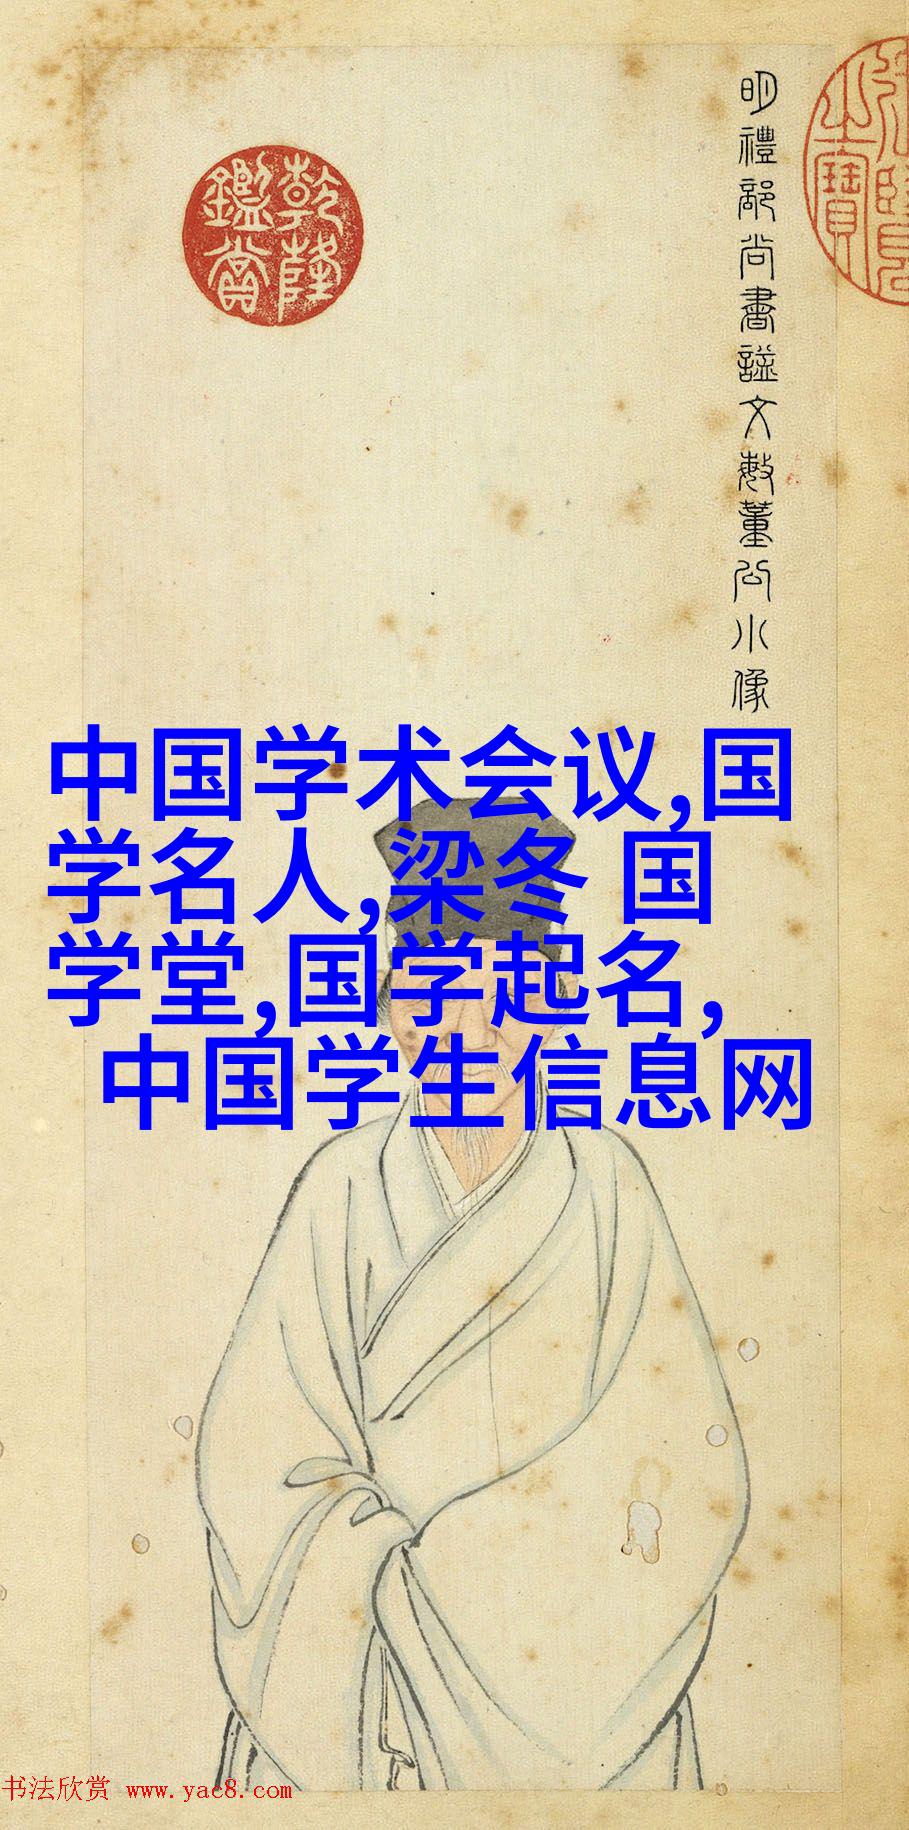 明禮部尚書諡文敏董公小像
乾隆
鑑賞
中国学术会议,国
学名人,梁冬 国
学堂,国学起名,
中国学生信息网
书法欣赏 www.yac8.com